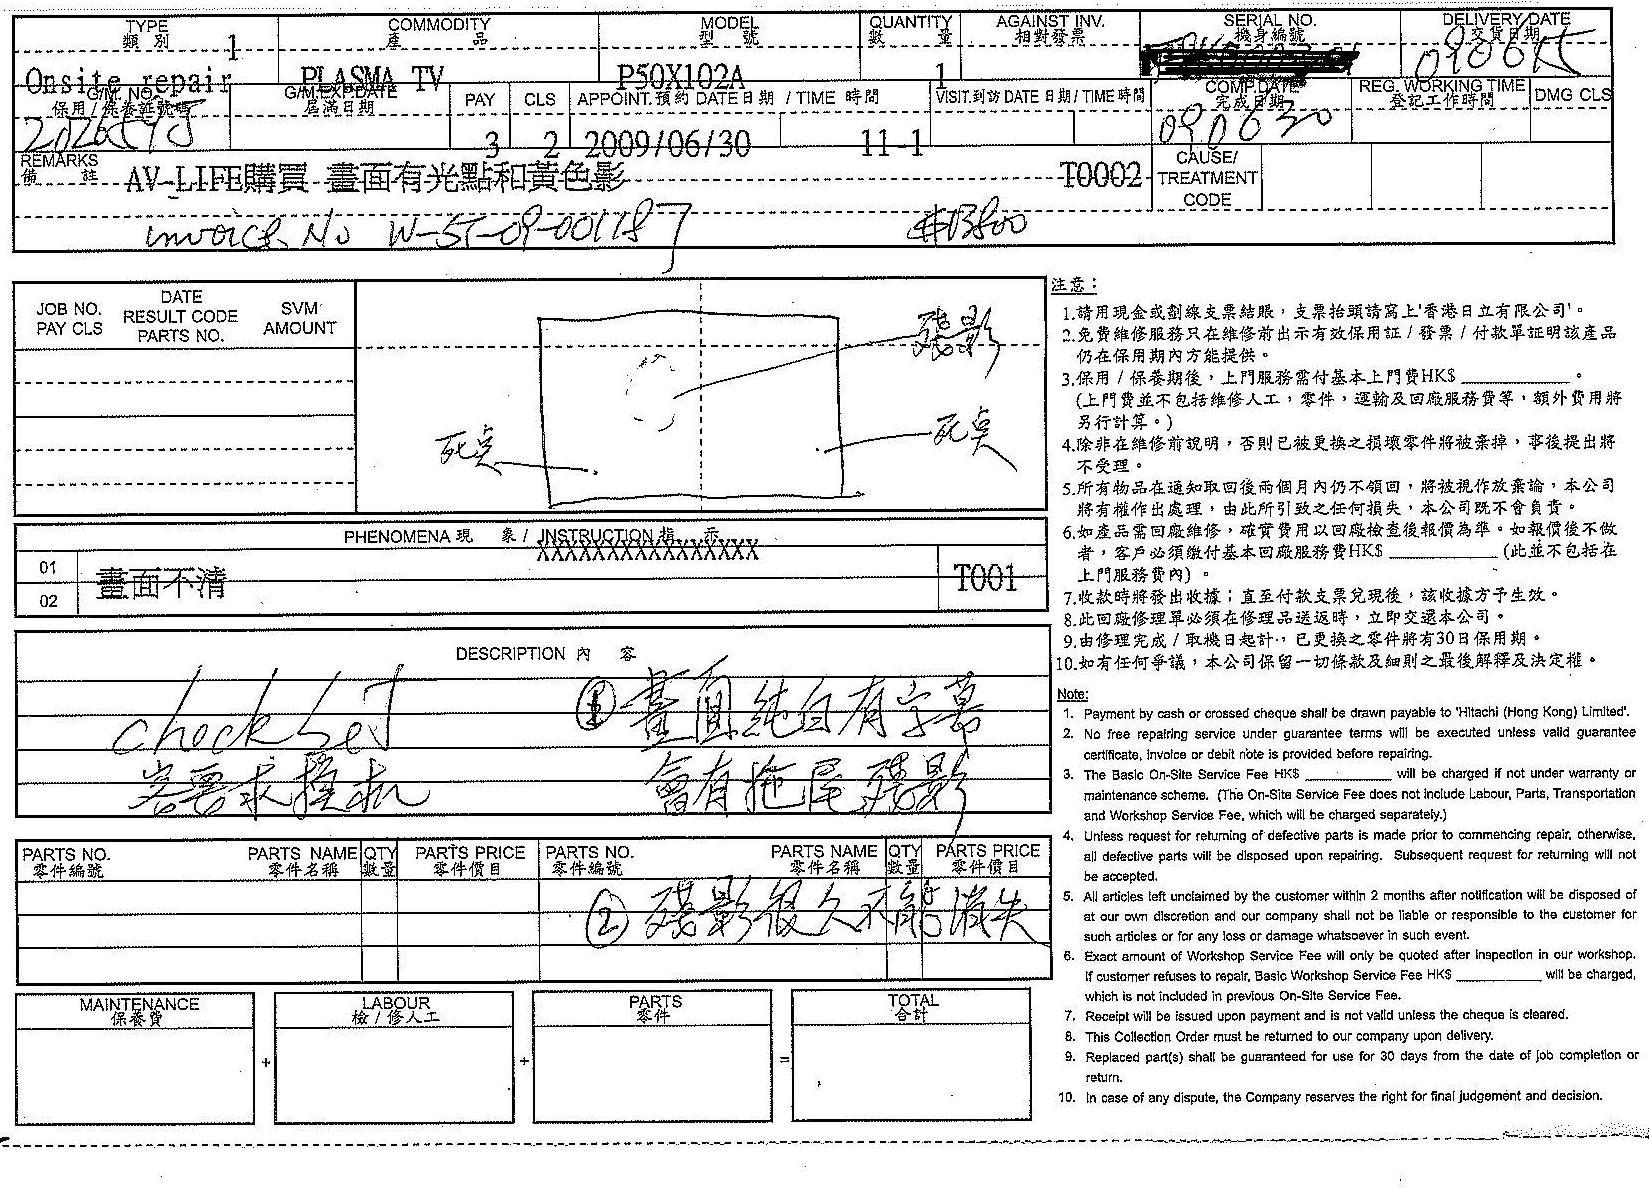 TYPE COMMODITY MODEL QUANTITY AGAINST INV. SERIAL NO. DELIVERY DATE
類別 1 產品 型號 數量 相對發票 機身編號 交貨日期
Onsite repair PLASMA TV P50X102A 1 090615
G/M. NO. G/M. EXP.DATE PAY CLS APPOINT.預約 DATE日期 / TIME 時間 VISIT.到訪 DATE 日期 / TIME 時間 COMP.DATE REG. WORKING TIME DMG CLS
保用 / 保養証號碼 屆滿日期 完成日期 登記工作時間
3 2 2009/06/30 11-1 090630
REMARKS
備註 AV-LIFE購買 畫面有光點和黃色影 T0002
CAUSE/
TREATMENT
CODE
invoice No W-ST-09-001787 $13800
JOB NO.
PAY CLS
DATE
RESULT CODE
PARTS NO.
SVM
AMOUNT
殘影
死点
死点
PHENOMENA 現象 / INSTRUCTION 指示
XXXXXXXXXXXXXXXX
01 畫面不清 T001
02
DESCRIPTION 內容
check Set ① 畫面純白有字幕
客要求換机 會有拖尾殘影
PARTS NO. PARTS NAME QTY PARTS PRICE PARTS NO. PARTS NAME QTY PARTS PRICE
零件編號 零件名稱 數量 零件價目 零件編號 零件名稱 數量 零件價目
② 殘影很久不能消失
MAINTENANCE LABOUR PARTS TOTAL
保養費 檢 / 修人工 零件 合計
+ + =
注意：
1.請用現金或劃線支票結賬，支票抬頭請寫上'香港日立有限公司'。
2.免費維修服務只在維修前出示有效保用証 / 發票 / 付款單証明該產品
仍在保用期內方能提供。
3.保用 / 保養期後，上門服務需付基本上門費HK$ ____________。
(上門費並不包括維修人工，零件，運輸及回廠服務費等，額外費用將
另行計算。)
4.除非在維修前說明，否則已被更換之損壞零件將被棄掉，事後提出將
不受理。
5.所有物品在通知取回後兩個月內仍不領回，將被視作放棄論，本公司
將有權作出處理，由此所引致之任何損失，本公司既不會負責。
6.如產品需回廠維修，確實費用以回廠檢查後報價為準。如報價後不做
者，客戶必須繳付基本回廠服務費HK$ ____________ (此並不包括在
上門服務費內)。
7.收款時將發出收據；直至付款支票兌現後，該收據方予生效。
8.此回廠修理單必須在修理品送返時，立即交還本公司。
9.由修理完成 / 取機日起計，已更換之零件將有30日保用期。
10.如有任何爭議，本公司保留一切條款及細則之最後解釋及決定權。
Note:
1. Payment by cash or crossed cheque shall be drawn payable to 'Hitachi (Hong Kong) Limited'.
2. No free repairing service under guarantee terms will be executed unless valid guarantee
certificate, invoice or debit note is provided before repairing.
3. The Basic On-Site Service Fee HK$ ____________ will be charged if not under warranty or
maintenance scheme. (The On-Site Service Fee does not include Labour, Parts, Transportation
and Workshop Service Fee, which will be charged separately.)
4. Unless request for returning of defective parts is made prior to commencing repair, otherwise,
all defective parts will be disposed upon repairing. Subsequent request for returning will not
be accepted.
5. All articles left unclaimed by the customer within 2 months after notification will be disposed of
at our own discretion and our company shall not be liable or responsible to the customer for
such articles or for any loss or damage whatsoever in such event.
6. Exact amount of Workshop Service Fee will only be quoted after inspection in our workshop.
If customer refuses to repair, Basic Workshop Service Fee HK$ ____________ will be charged,
which is not included in previous On-Site Service Fee.
7. Receipt will be issued upon payment and is not valid unless the cheque is cleared.
8. This Collection Order must be returned to our company upon delivery.
9. Replaced part(s) shall be guaranteed for use for 30 days from the date of job completion or
return.
10. In case of any dispute, the Company reserves the right for final judgement and decision.